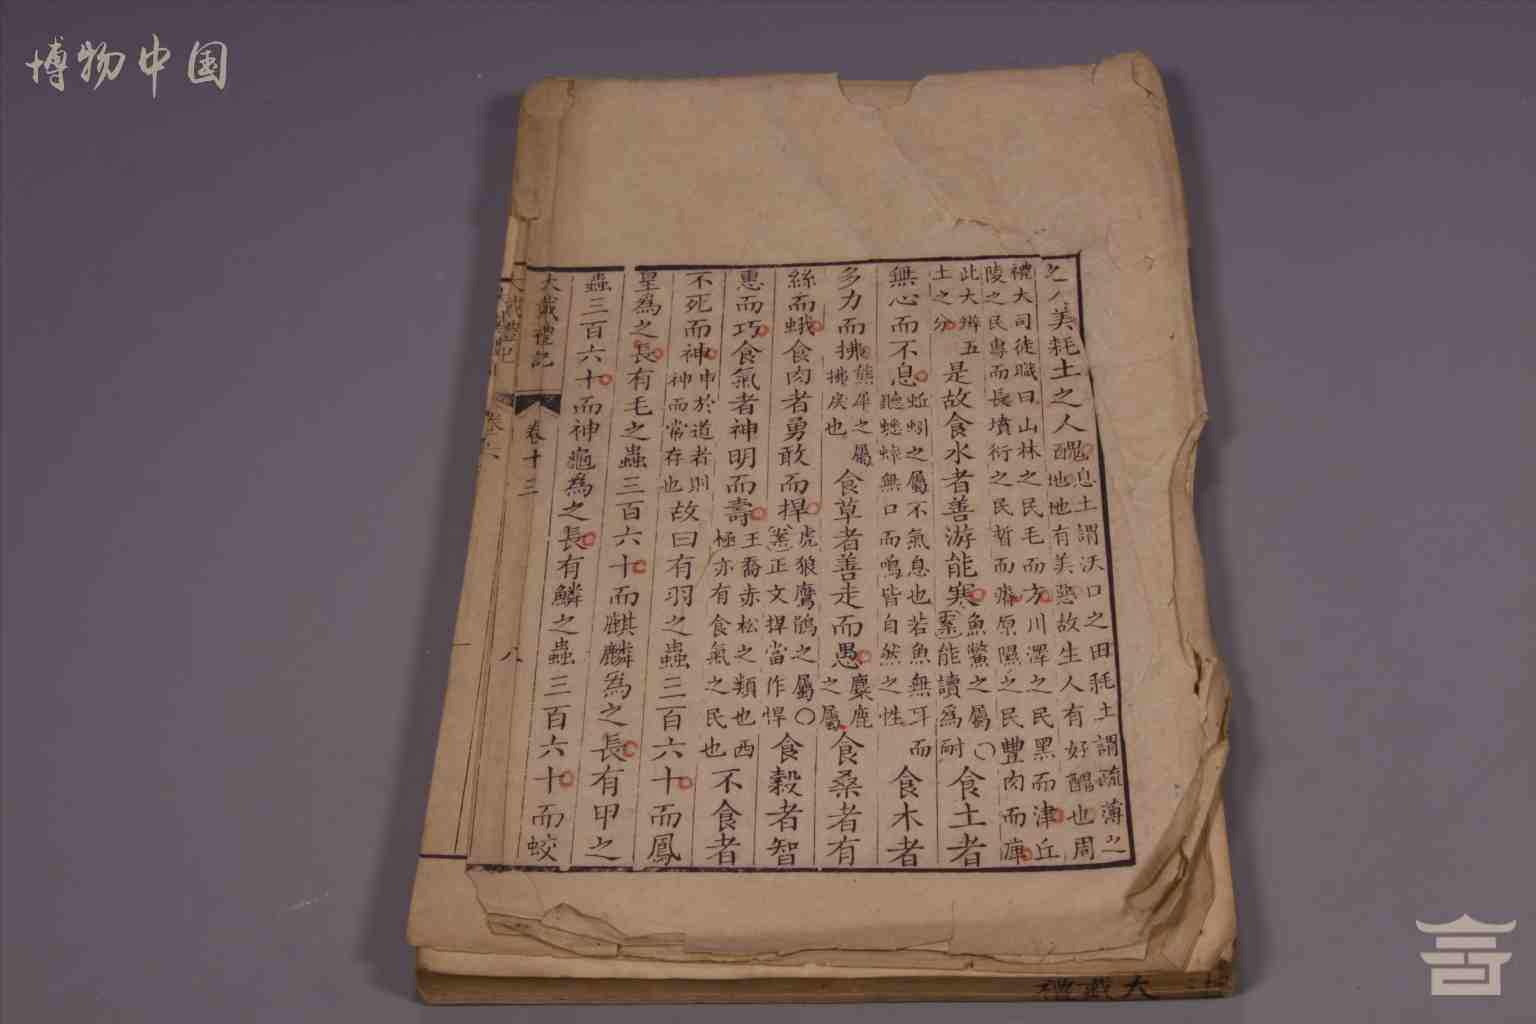 博物中国
之人美耗土之人醜息土謂沃口之田耗土謂疏薄之
地地有美惡故生人有好醜也周
禮大司徒職曰山林之民毛而方川澤之民黑而津丘
陵之民專而長墳衍之民皙而瘠原隰之民豐肉而庳
此大辨五
土之分
是故食水者善游能寒魚鱉之屬〇
案能讀爲耐
食土者
無心而不息蚯蚓之屬不氣息也若魚無耳而
聽蟋蟀無口而鳴皆自然之性
食木者
多力而拂熊犀之屬
拂戾也
食草者善走而愚麋鹿
之屬
食桑者有
絲而蛾食肉者勇敢而捍虎狼鷹鶻之屬〇
案正文捍當作悍
食穀者智
惠而巧食氣者神明而壽王喬赤松之類也西
極亦有食氣之民也
不食者
不死而神申於道者則
神而常存也
故曰有羽之蟲三百六十而鳳
皇為之長有毛之蟲三百六十而麒麟為之長有甲之
蟲三百六十而神龜為之長有鱗之蟲三百六十而蛟
大戴禮記 卷十三 八
大戴禮